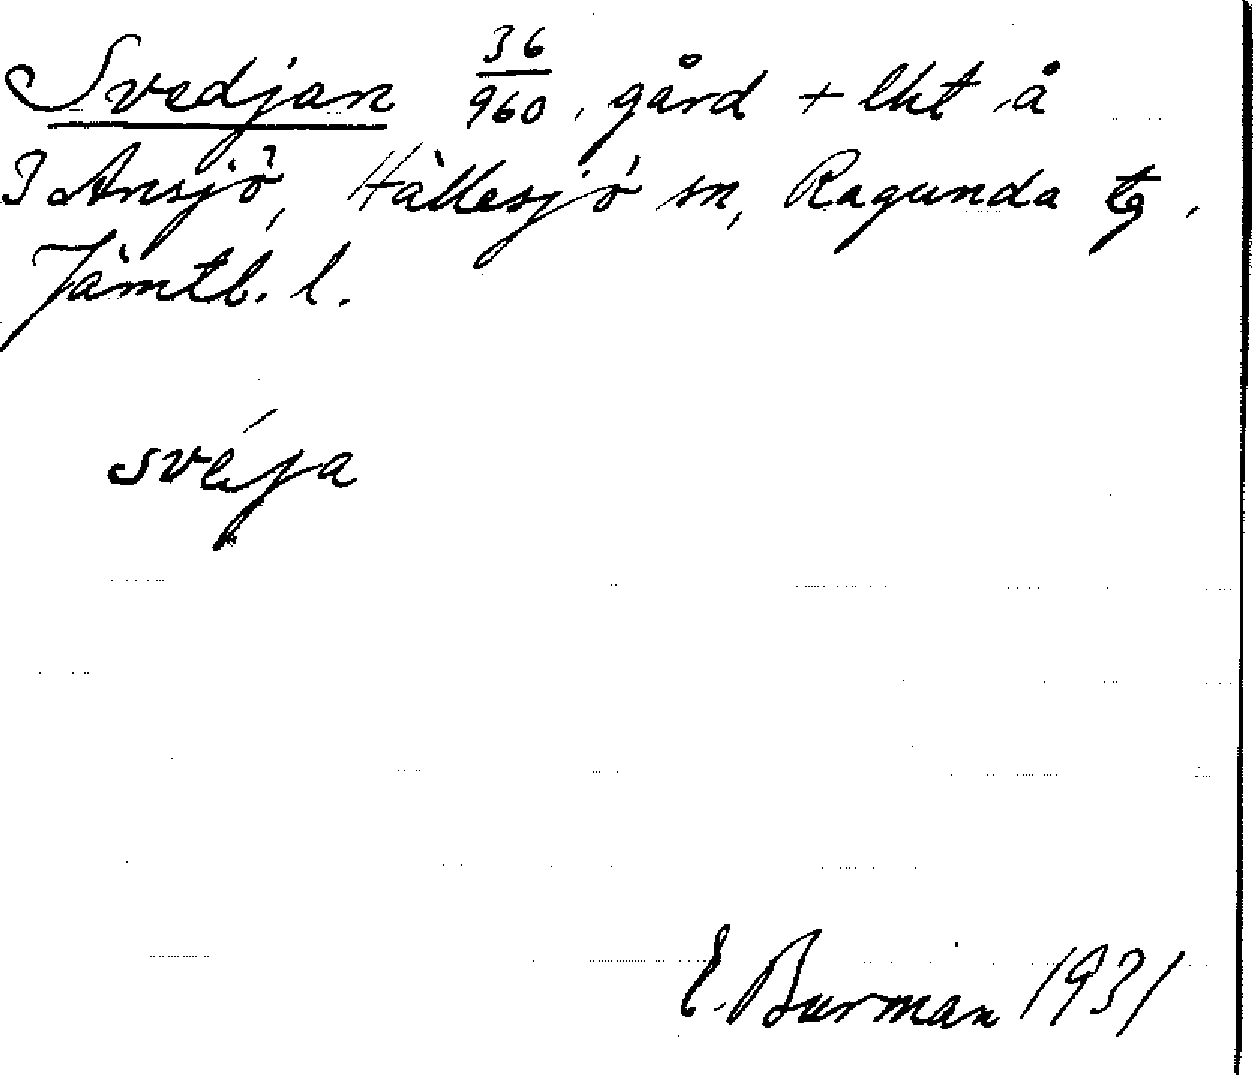 Svedjan 36/960, gård + lht å
3 Ansjö, Hällesjö sn, Ragunda tg,
Jämtl. l.
své̜ja
E. Burman 1931